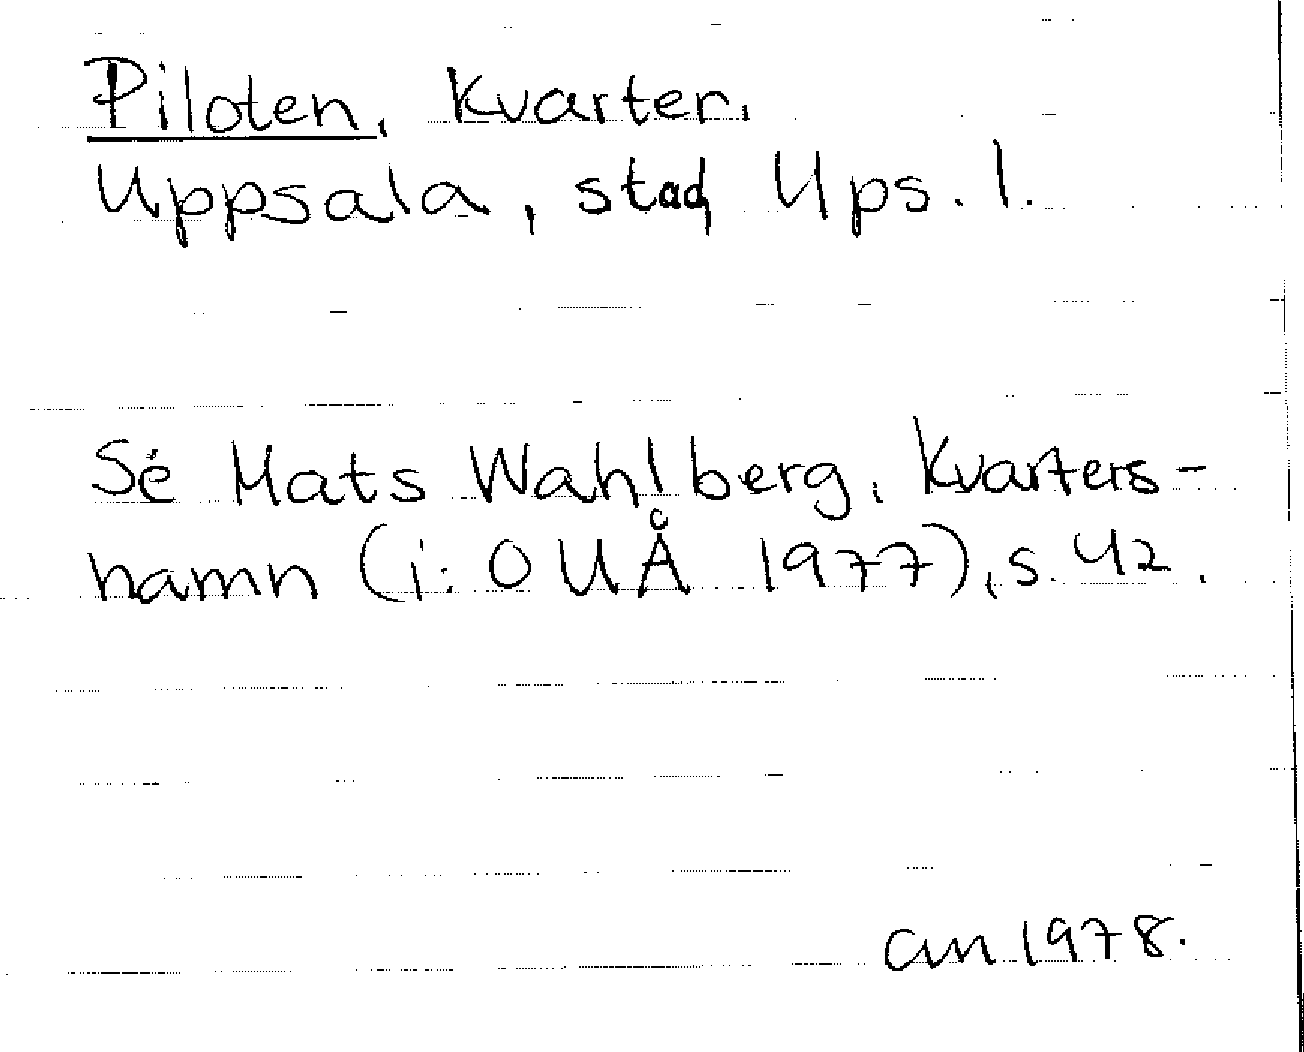 Piloten, Kvarter,
Uppsala, stad Ups. l.
Se Mats Wahlberg, Kvarters-
namn (i: OUÅ 1977), s. 42.
am 1978.